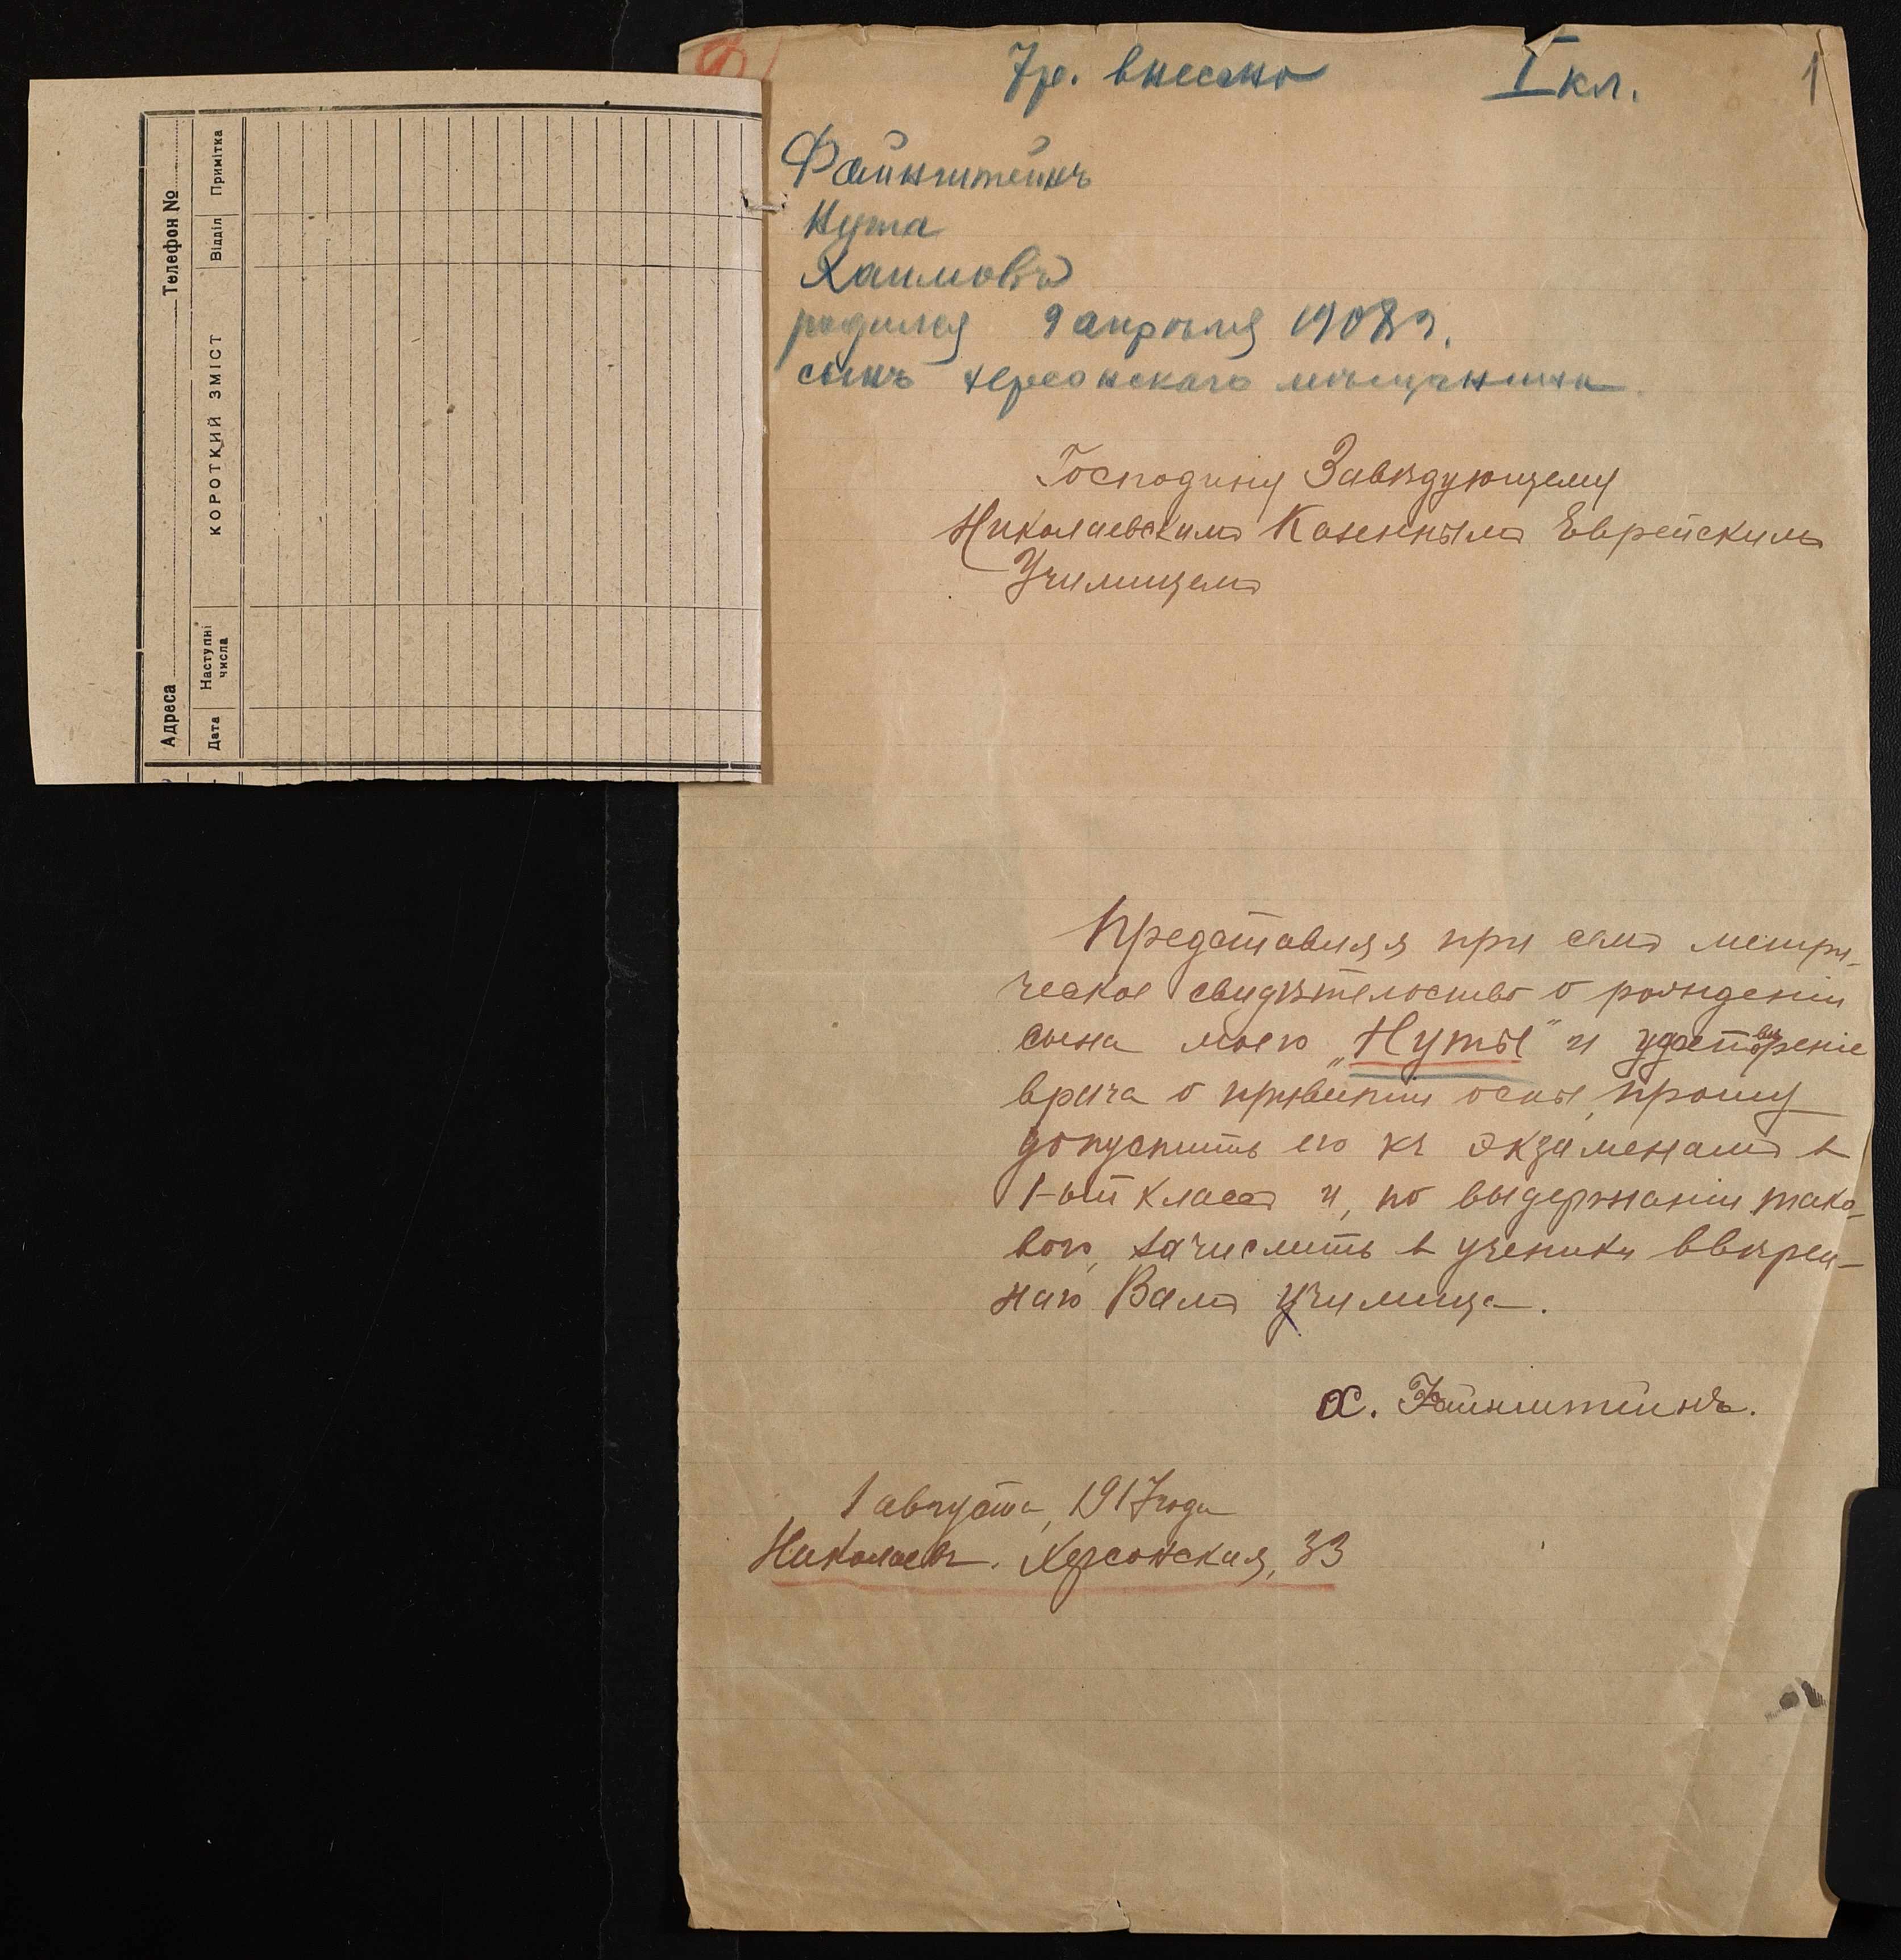 Адреса Телефон №
Дата Наступні числа КОРОТКИЙ ЗМІСТ Відділ Примітка
7р. внесено I кл. 1
Файнштейнъ
Нута
Хаимовъ
родился 9 апрѣля 1908 г.
сынъ херсонскаго мѣщанина
Господину Завѣдующему
Николаевскимъ Казеннымъ Еврейскимъ
Училищемъ
Представляя при семъ метри-
ческое свидѣтельство о рожденіи
сына моего „Нуты" и удостовѣреніе
врача о прививкѣ оспы, прошу
допустить его къ экзаменамъ в
1-ый классъ и, по выдержаніи тако-
вого, зачислить в ученики ввѣрен-
наго Вамъ училища.
Х. Файнштейнъ.
1 августа, 1917 года
Николаевъ. Херсонская, 33